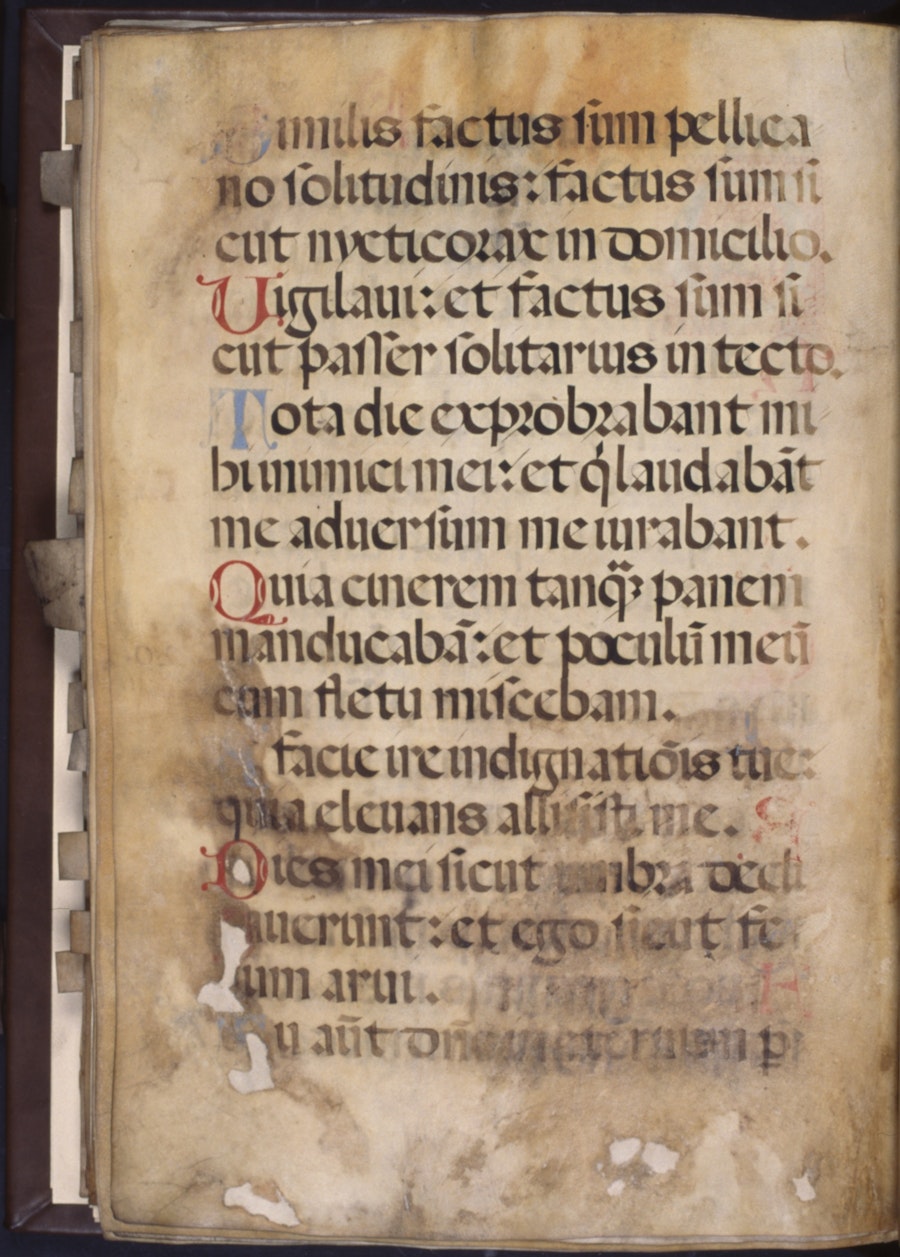 Similis factus sum pellica
no solitudinis: factus sum si
cut nycticorax in domicilio.
Uigilaui: et factus sum si
cut passer solitarius in tecto.
Tota die exprobrabant mi
hi inimici mei: et q́ laudabāt
me aduersum me iurabant.
Quia cinerem tanq̃ȝ panem
manducabā: et poculū meū
cum fletu miscebam.
facie ire indignatiōis tue:
quia eleuans allisisti me.
Dies mei sicut umbra decli
nauerunt: et ego sicut fe
num arui.
Tu aūt dñe in eternum p̲